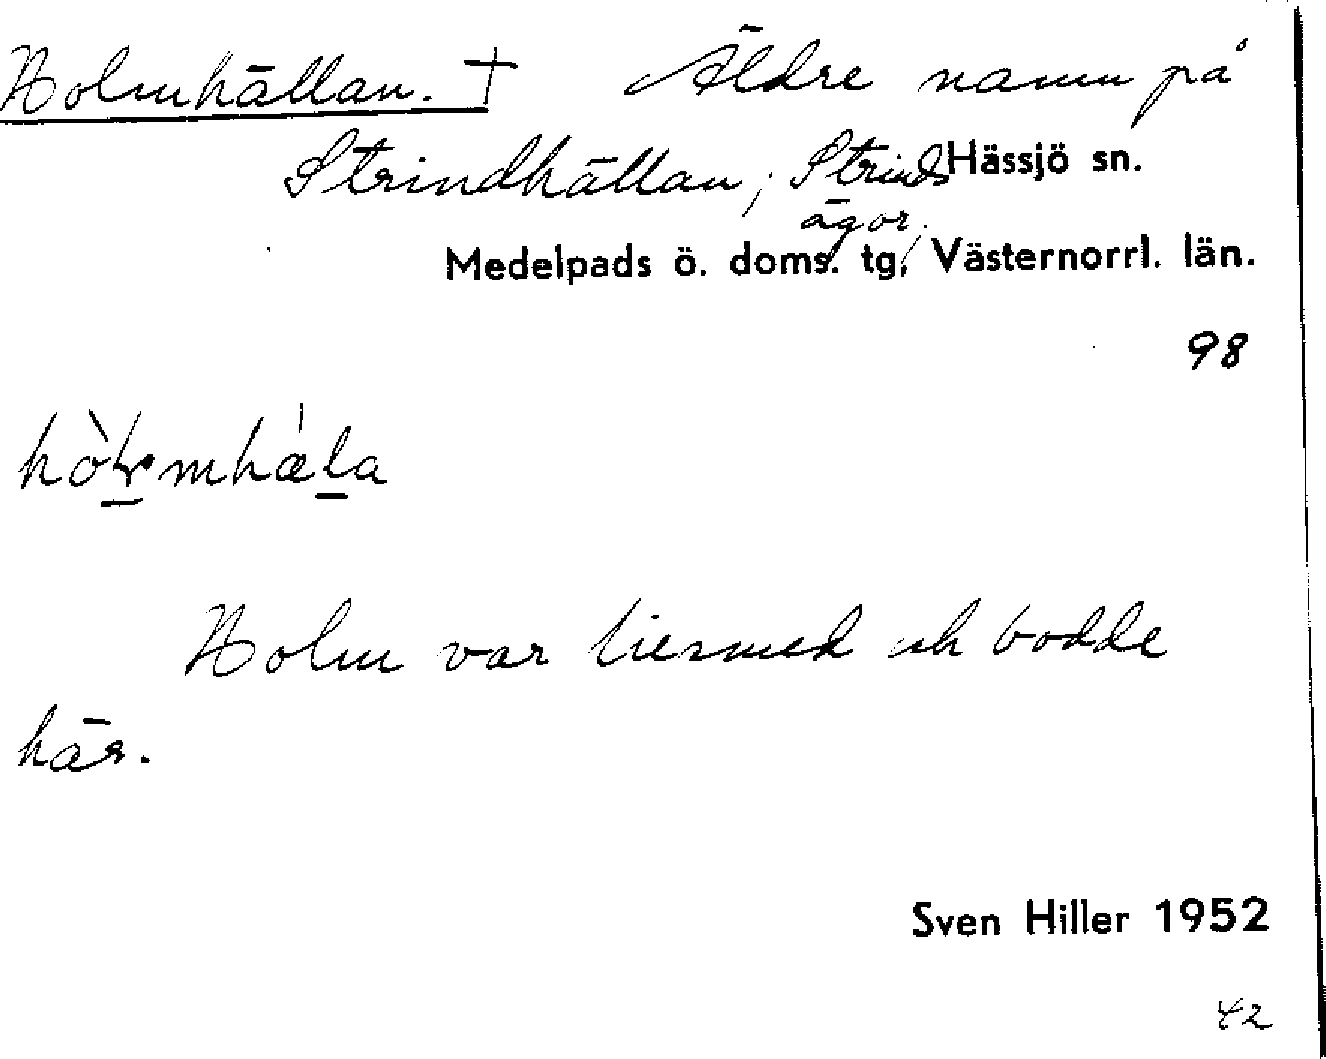 Holmhällan. † Äldre namn på
Strindhällan, Strinds
Hässjö sn.
ägor.
Medelpads ö. doms. tg, Västernorrl. län.
98
Holm var liesmed och bodde
här.
Sven Hiller 1952
42